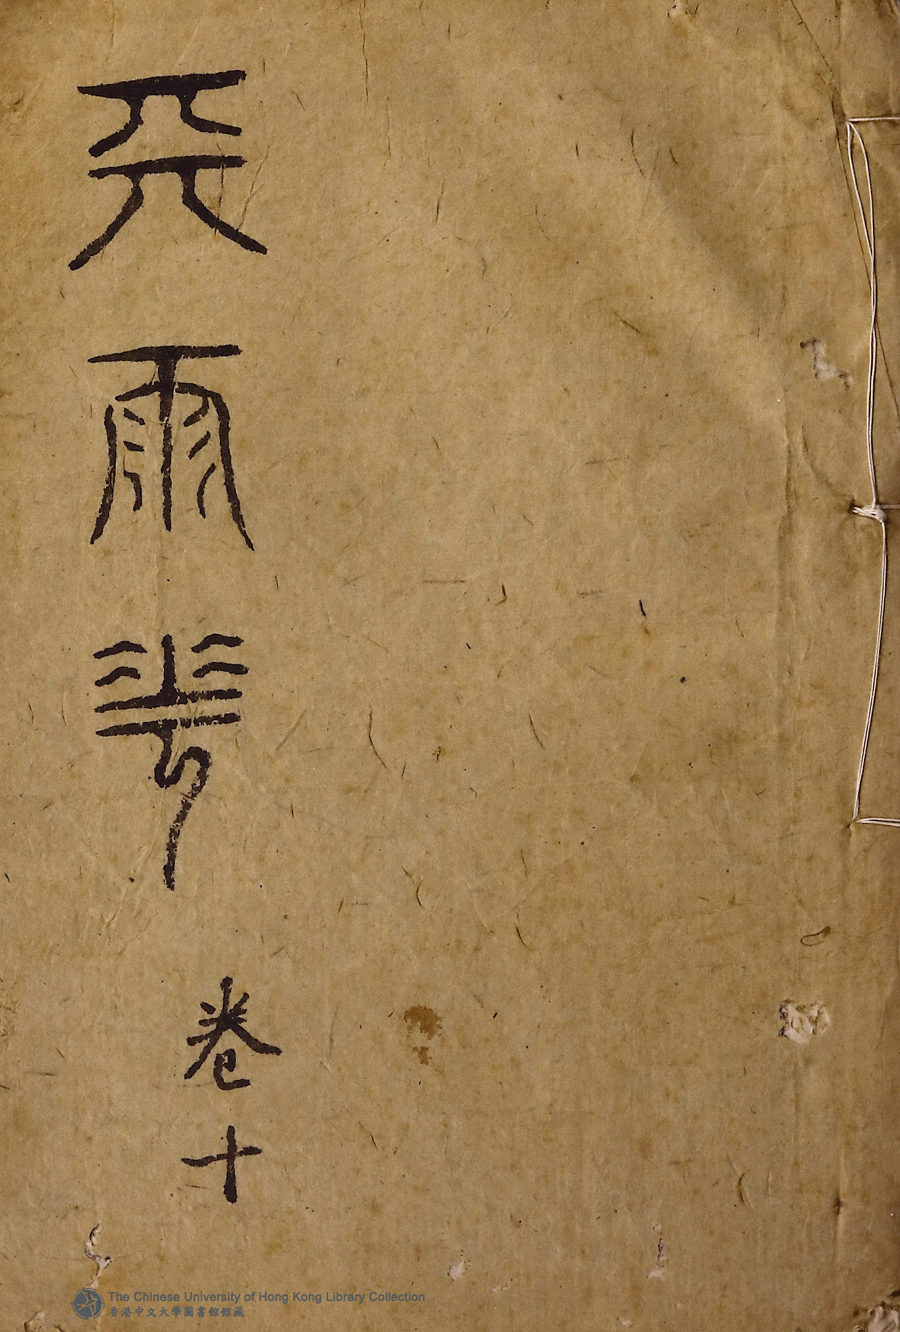 天雨花
卷十
The Chinese University of Hong Kong Library Collection
香港中文大學圖書館館藏